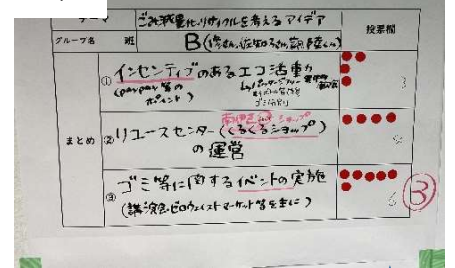 テーマ ごみ減量化、リサイクルを考えるアイデア 投票欄
グループ名 班 B
① インセンティブのあるエコ活動 3
(paypay等の
ポイント)
まとめ ② リユースセンター(くるくるショップ)
の運営
③ ゴミ等に関するイベントの実施 6 ③
(講演会・ゼロウェイストマーケット等を主に)